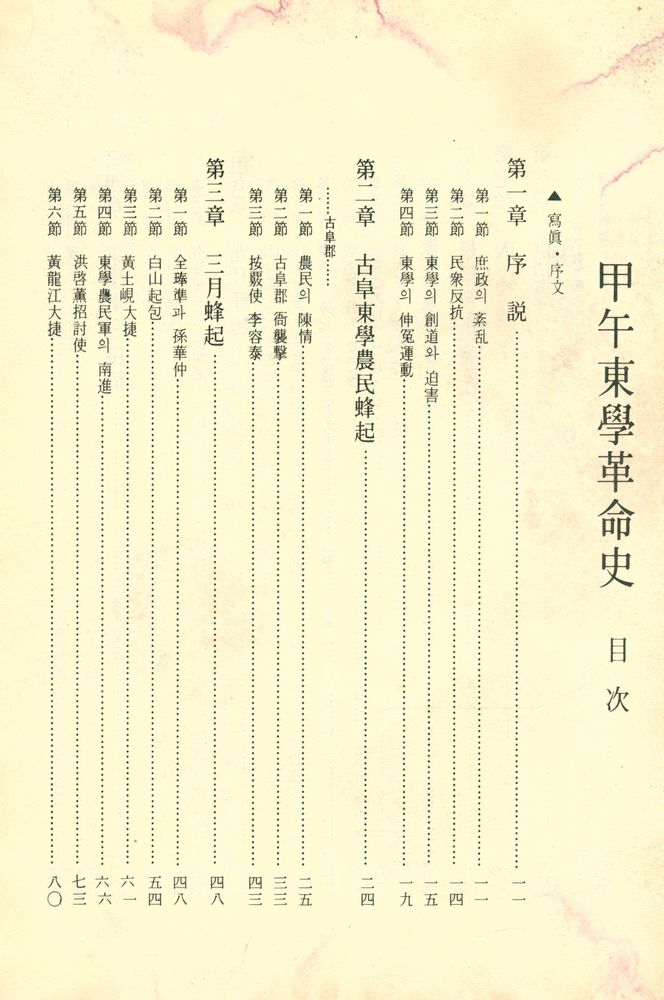 甲午東學革命史 目次
▲ 寫眞·序文
第一章 序 説……一一
第一節 庶政의 紊乱……一一
第二節 民衆反抗……一四
第三節 東學의 創道와 迫害……一五
第四節 東學의 伸冤運動……一九
第二章 古阜東學農民蜂起……二四
……古阜郡……
第一節 農民의 陳情……二五
第二節 古阜郡 衙襲擊……三三
第三節 按覈使 李容泰……四三
第三章 三月蜂起……四八
第一節 全琫準과 孫華仲……四八
第二節 白山起包……五四
第三節 黃土峴大捷……六一
第四節 東學農民軍의 南進……六六
第五節 洪啓薰招討使……七三
第六節 黃龍江大捷……八〇